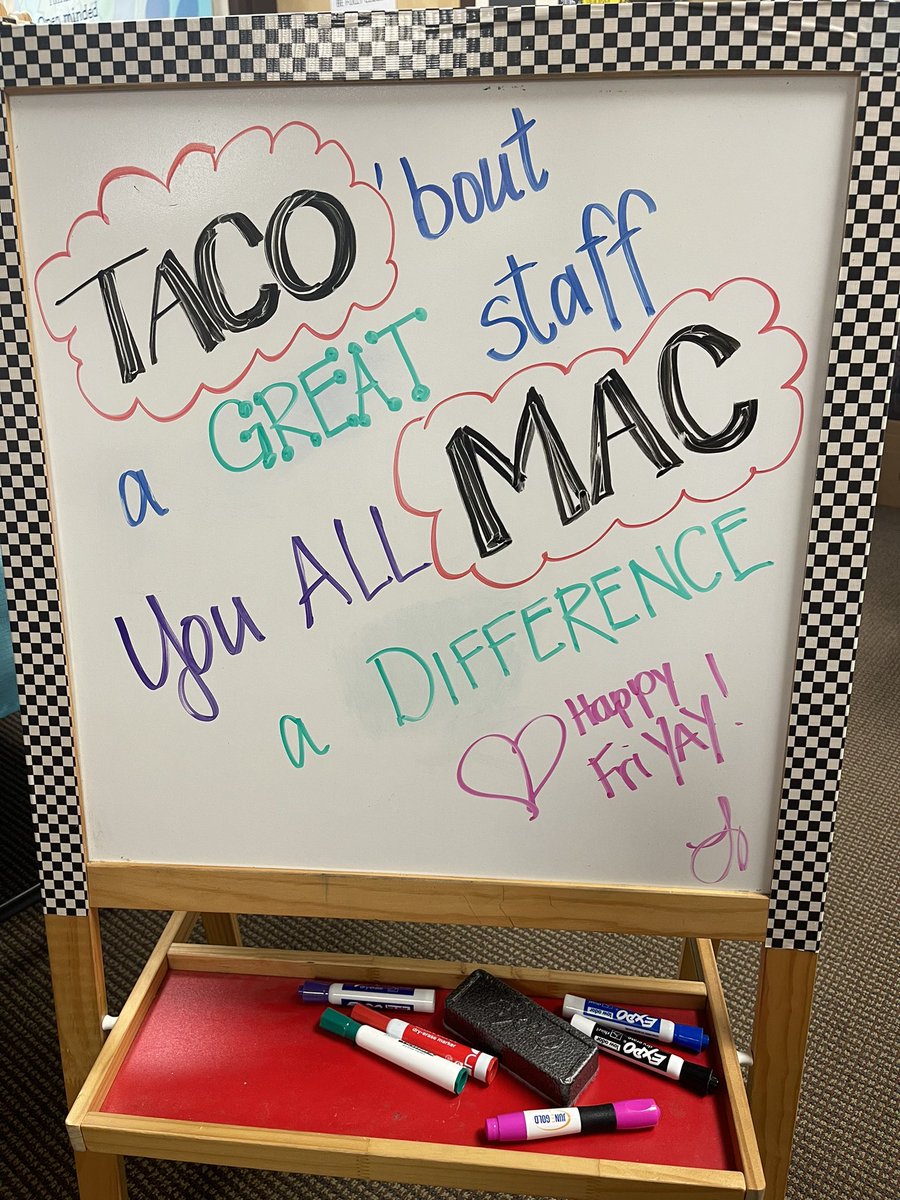 Open minded
TACO 'bout
a GREAT staff
You ALL MAC
a DIFFERENCE
Happy
FriYAY!
EXPO
EXPO
dry-erase marker
JUN GOLD